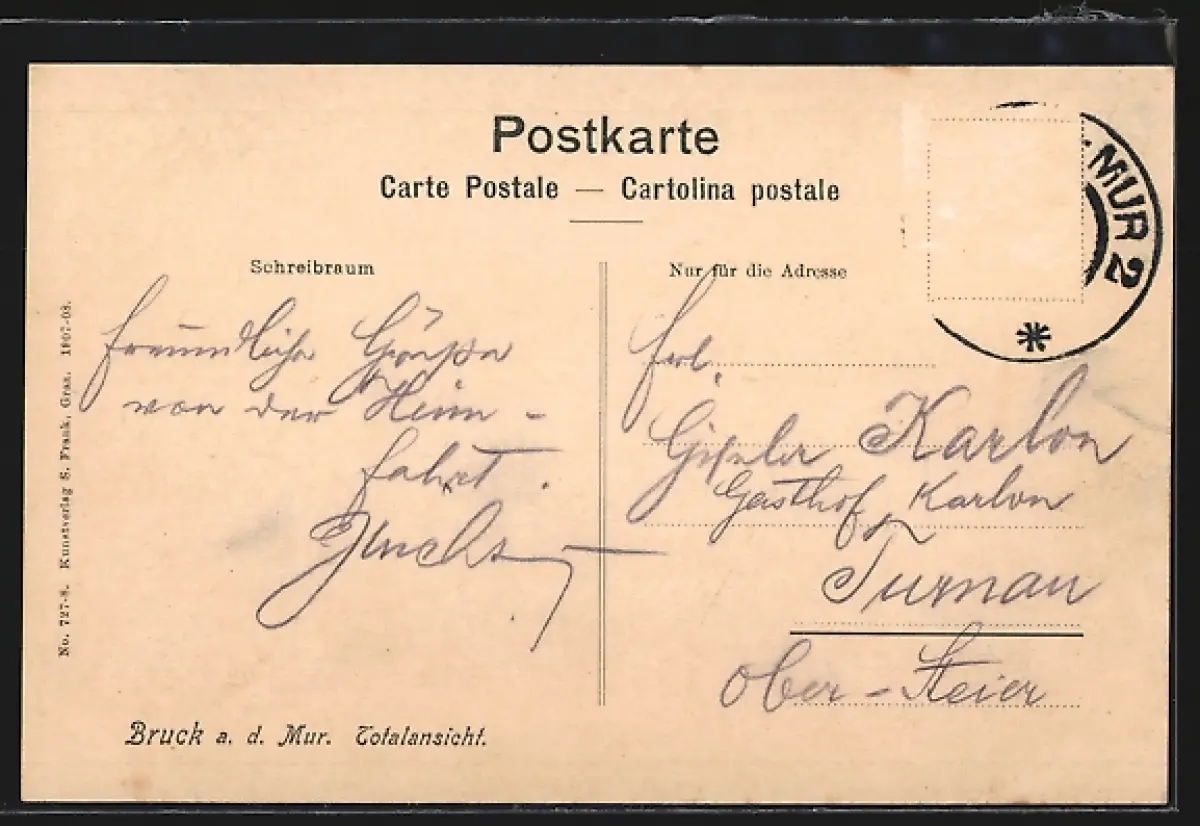 Postkarte
Carte Postale — Cartolina postale
MUR 2
Schreibraum
Freundliche Grüße
von der Heim-
fahrt.
Nur für die Adresse
Frl.
Gisela Karlon
Gasthof Karlon
Turnau
Ober-Steier
No. 727-8. Kunstverlag S. Frank, Graz. 1907-08.
Bruck a. d. Mur. Totalansicht.